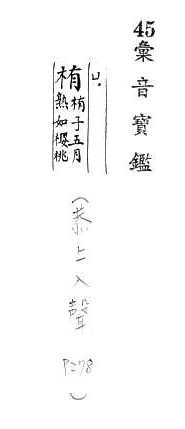 45
彙音寶鑑
栯 栯子五月
熟如櫻桃
(恭上入聲 P278)